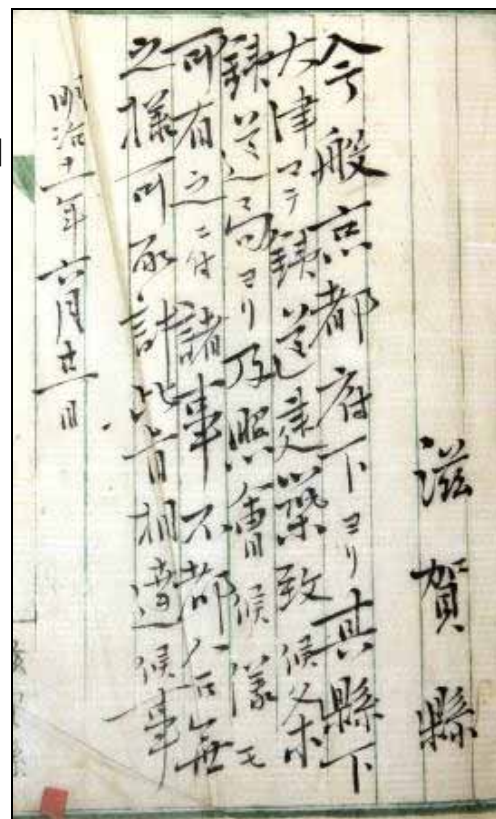 滋賀縣
今般京都府下ヨリ其縣下
大津マテ鉄道建築致候条
鉄道局ヨリ及照會候儀モ
可有之ニ付諸事不都合無
之様可取計此旨相達候事
明治十一年六月廿一日